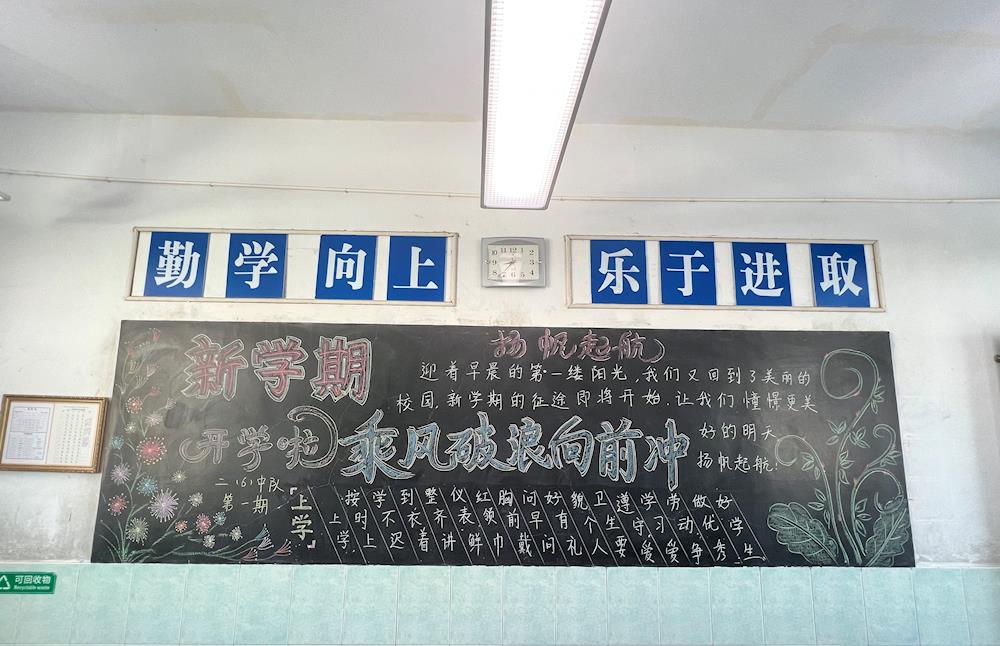 勤学向上
乐于进取
新学期
扬帆起航
迎着早晨的第一缕阳光,我们又回到了美丽的
校园,新学期的征途即将开始,让我们憧憬更美
好的明天
扬帆起航!
开学啦
乘风破浪向前冲
二(6)中队
第一期
「上学」
上学,
按时上
学不迟
到衣着
整齐讲
仪表鲜
红领巾
胸前戴
问早问
好有礼
貌个人
卫生要
遵守爱
学习爱
劳动争
做优秀
好学生。
10 11 12 1 2 3 4 5 6 7 8 9
可回收物
Recyclable waste